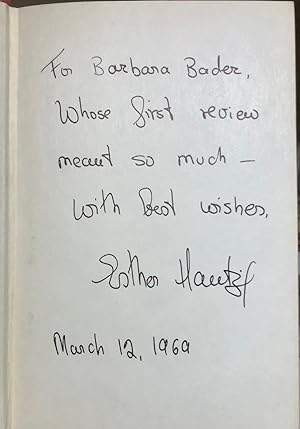 For Barbara Bader,
Whose first review
meant so much —
with best wishes,
Esther Hautzig
March 12, 1969